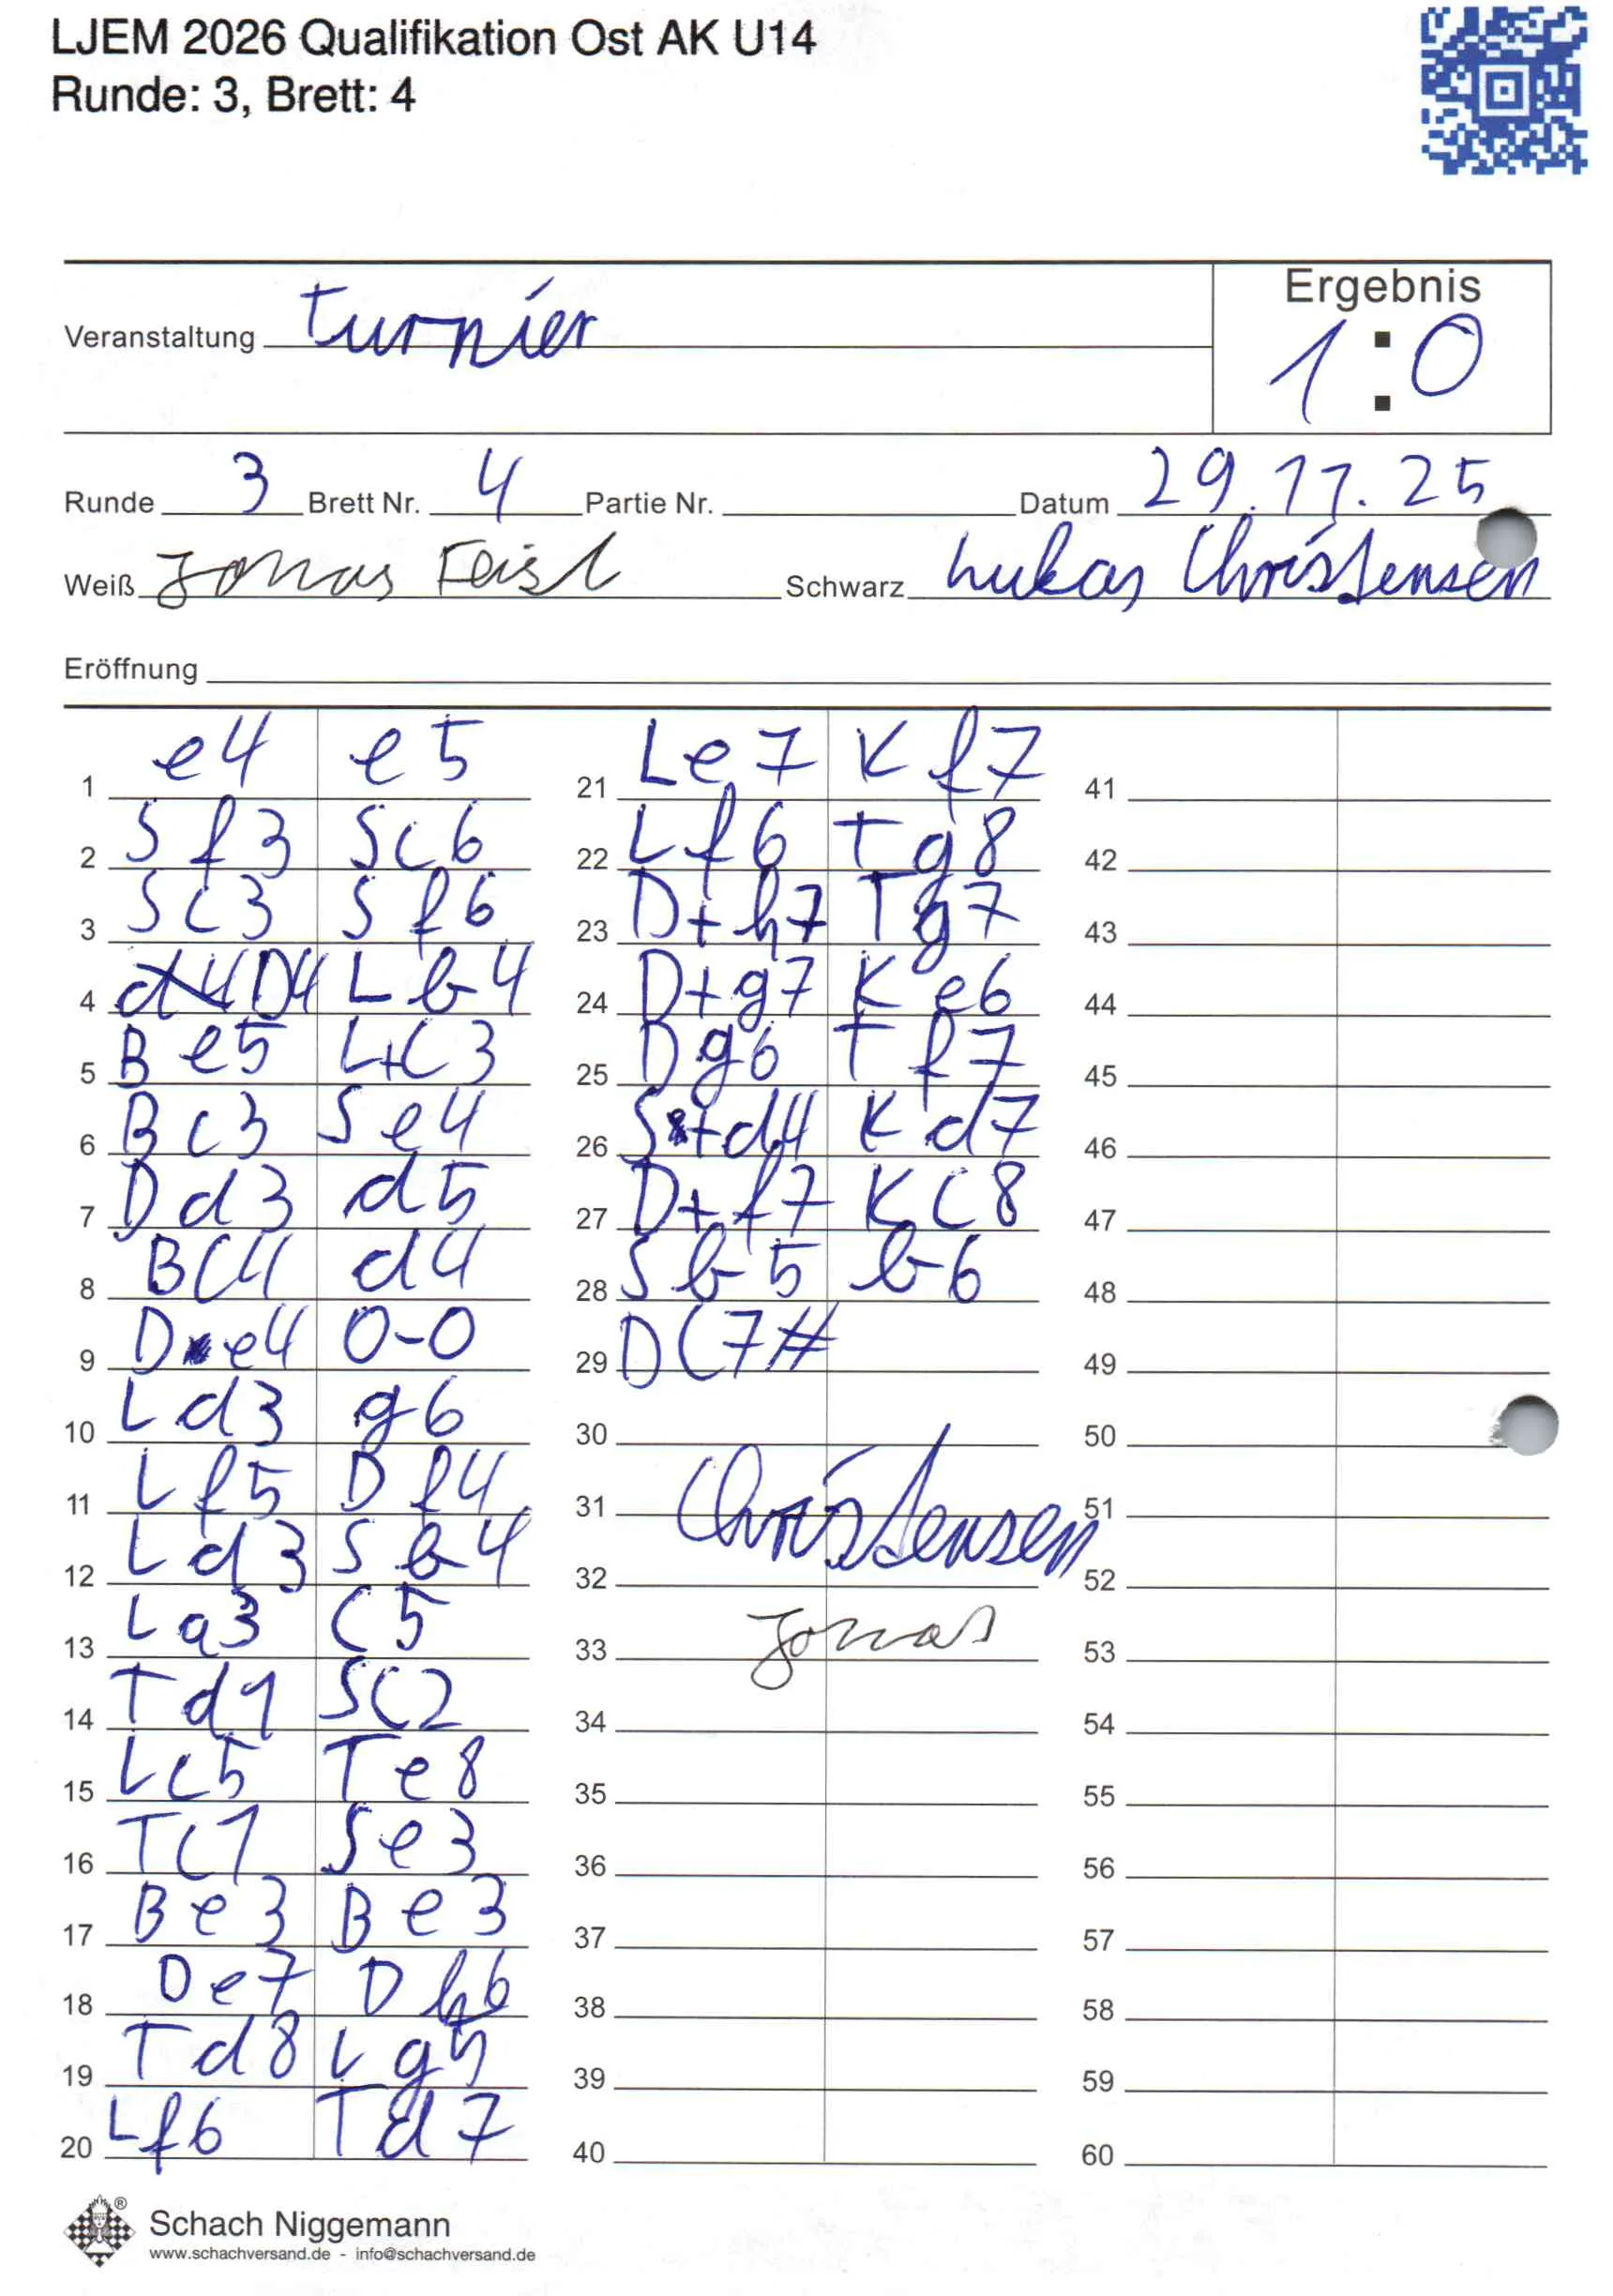 LJEM 2026 Qualifikation Ost AK U14
Runde: 3, Brett: 4
Veranstaltung Turnier
Ergebnis
1 : 0
Runde 3 Brett Nr. 4 Partie Nr. Datum 29.11.25
Weiß Jonas Feisl Schwarz Lukas Christensen
Eröffnung
1 e4 e5 21 Le7 Kf7 41
2 Sf3 Sc6 22 Lf6 Tg8 42
3 Sc3 Sf6 23 D+h7 Tg7 43
4 d4 D4 Lb4 24 D+g7 Ke6 44
5 Be5 L+C3 25 Dg6 Tf7 45
6 Bc3 Se4 26 S+d4 Kd7 46
7 Dd3 d5 27 D+f7 KC8 47
8 BC4 d4 28 Sb5 b6 48
9 De4 0-0 29 DC7# 49
10 Ld3 g6 30 50
11 Lf5 Df4 31 Christensen 51
12 Ld3 Sb4 32 52
13 La3 C5 33 Jonas 53
14 Td1 SC2 34 54
15 Lc5 Te8 35 55
16 TC1 Se3 36 56
17 Be3 Be3 37 57
18 De7 Dh6 38 58
19 Td8 Lg5 39 59
20 Lf6 Td7 40 60
Schach Niggemann
www.schachversand.de - info@schachversand.de